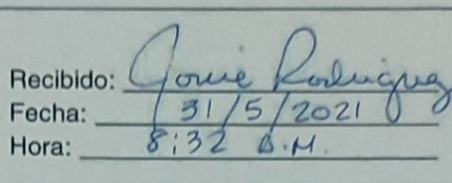 Recibido: Rodriguez
Fecha: 31/5/2021
Hora: 8:32 A.M.